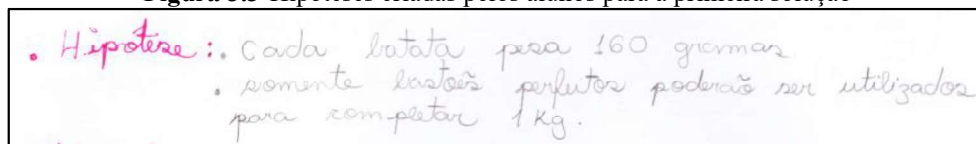 • Hipóteze: . Cada batata pesa 160 grammas
. somente bastões perfeitos poderão ser utilizados
para completar 1 Kg.